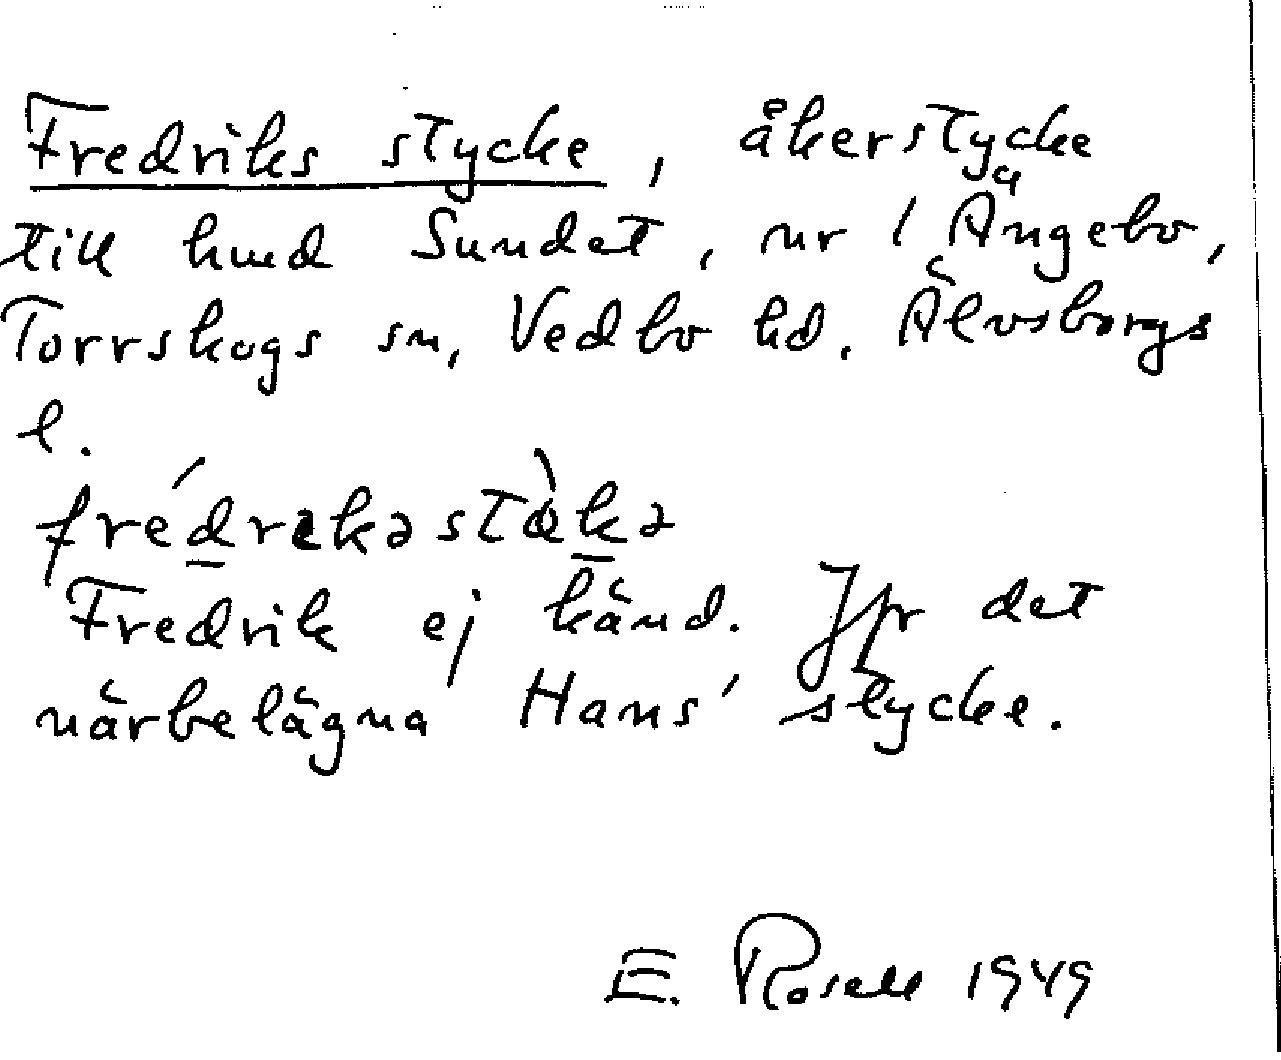 Fredriks stycke, åkerstycke
till hmd Sundet, nr 1 Ängebo,
Torrskogs sn, Vedbo hd. Älvsborgs
l.
frédrekəstø̀kə
Fredrik ej känd. Jfr det
närbelägna Hans' stycke.
E. Rosell 1949